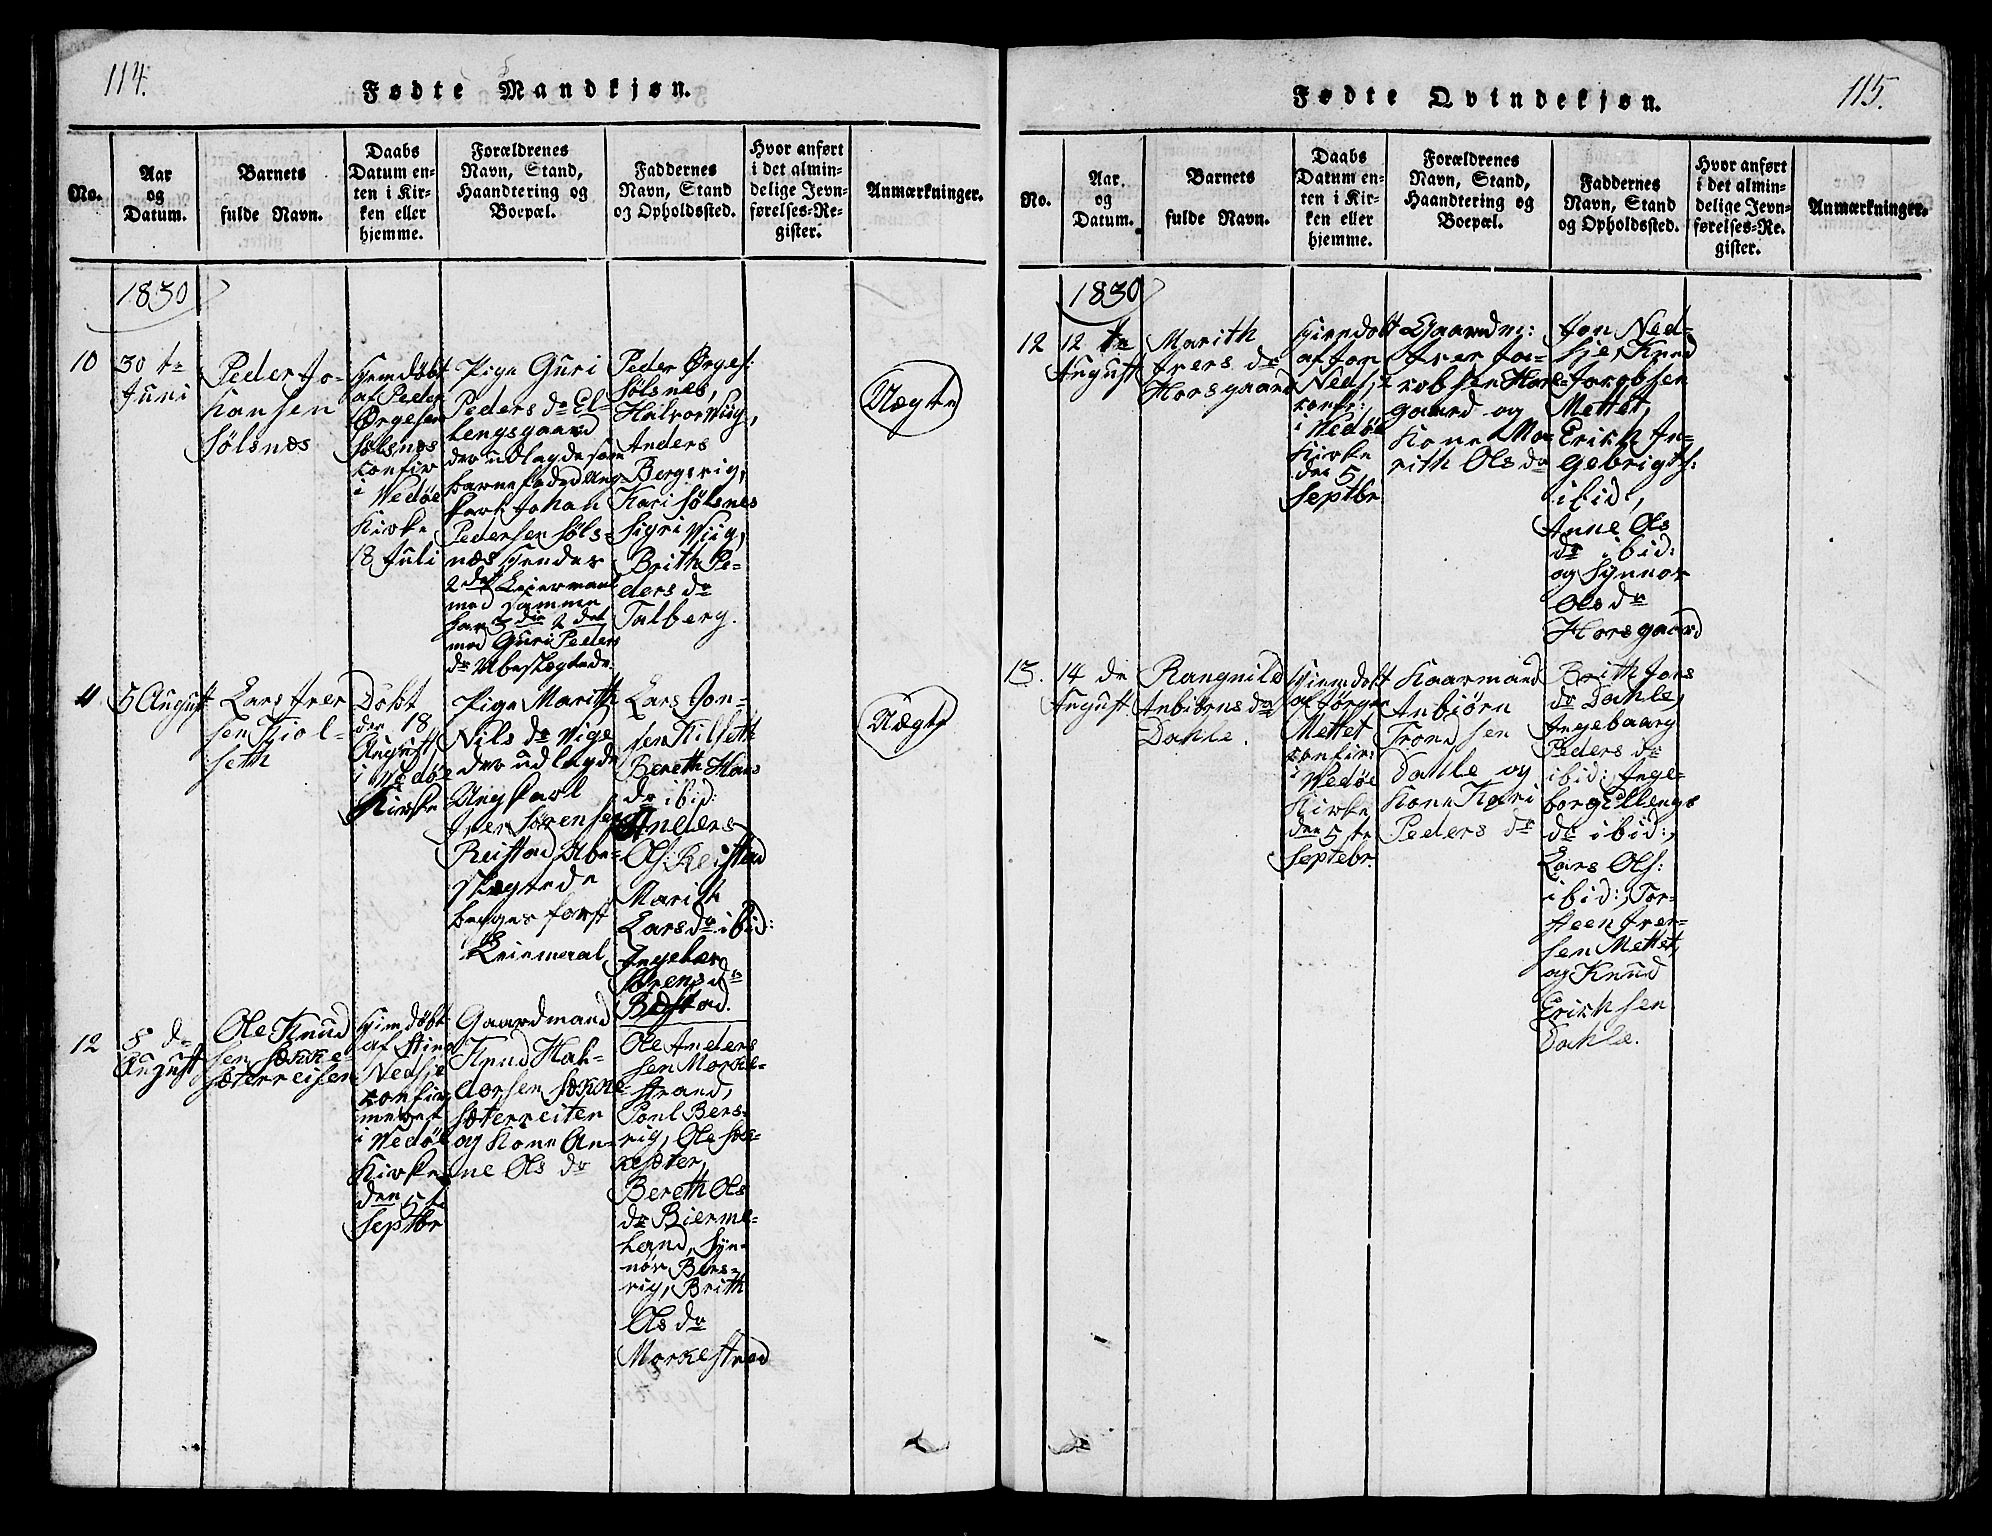 114.
Fødte Mandkjøn.
No.
Aar
og
Datum.
Barnets
fulde Navn.
Daabs
Datum en-
ten i Kir-
ken eller
hjemme.
Forældrenes
Navn, Stand,
Haandtering og
Boepæl.
Faddernes
Navn, Stand
og Opholdssted.
Hvor anført
i det almin-
delige Jevn-
førelses-Re-
gister.
Anmærkninger.
1830
10
30 te
Juni
Peder Jo-
hansen
Sølsnæs
Hjemdøbt
af Peder
Ørgesen
Sølsnæs
confir
i Vedøe
Kirke
18 Juli
Pige Guri
Peders dr El-
lengsgaard
der udlagde som
barnefader Ung-
karl Johan
Pedersen Søls-
næs hendes
2 det Leiermaal
med samme
2 det
med Guri Peders
dr Ubeslægtede
Peder Ørges:
Sølsnes,
Halvor Wiig,
Anders
Bergsvig,
Kari Sølsnes
Sigri Wiig,
Brith Pe-
ders dr
Talberg.
Uægte
11
5 August
Lars Iver
sen Kiol-
seth
Døbt
den 18
August
i Vedøe
Kirke
Pige Marith
Nils dr Vige
der udlagde
Ungkarl
Iver Sørensen
Reistad Ube-
slægtede
begges først
Leiemaal
Lars Jon-
sen Kilseth
Bereth Hans
dr ibid:
Anders
Ols: Reistad
Marith
Lars dr ibid:
Ingebær
Sørens dr
Uægte
12
8 de
August
Ole Knud
sen Sække-
sæterreisen
Hjemdøbt
af Stine
Nedsje
confir
meret
i Vedøe
Kirke
den 5 te
Septbr
Gaardmand
Knud Hal-
dorsen Sække-
sæterreiten
og Kone An-
ne Ols dr
Ole Anders
sen Morke-
strand,
Poul Bers-
vig, Ole Sæk-
kesæter,
Bereth Ols
dr Bierme-
land, Syn-
nøv Bers-
vig, Brith
Ols dr
Morkestrand
115.
Fødte Qvindekjøn.
No.
Aar.
og
Datum.
Barnets
fulde Navn.
Daabs
Datum en-
ten i Kir-
ken eller
hjemme.
Forældrenes
Navn, Stand,
Haandtering og
Boepæl.
Faddernes
Navn, Stand
og Opholdssted.
Hvor anført
i det almin-
delige Jevn-
førelses-Re-
gister.
Anmærkninger.
1830
12
12 te
August
Marith
Ivers dr
Horsgaard
Hiemdøbt
af Jon
Neds,
confir:
i Vedøe
Kirke
den 5
Septbr
Gaardm:
Iver Ja-
cobsen Hors-
gaard og
Kone Ma-
rith Ols dr
Jon Ned-
sje, Knud
Jacobsen
Mettet,
Erich In-
gebrigts:
ibid,
Anne Ols
dr ibid:
og Synnov
Ols dr
Horsgaard
13.
14 de
August.
Rangnild
Anbiørns dr
Dahle.
Hiemdøbt
af Jørgen
Mettet
confir:
i Vedøe
Kirke
den 5 te
Septebr.
Kaarmand
Anbjørn
Trondsen
Dahle og
Kone Kari
Peders dr
Brith Jons
dr Dahle,
Ingebaarg
Peders dr
ibid:, Inge-
borg Ellengs
dr ibid:,
Lars Ols:
ibid:, Tor-
steen Iver-
sen Mettet,
og Knud
Erichsen
Dahle.